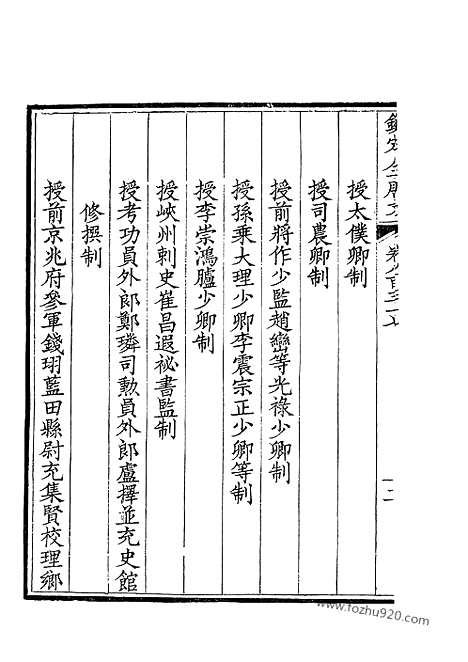 欽定全唐文 卷八百三十七
授太僕卿制
授司農卿制
授前將作少監趙巒等光祿少卿制
授孫乘大理少卿李震宗正少卿等制
授李崇鴻臚少卿制
授峽州刺史崔昌遐祕書監制
授考功員外郎鄭璘司勲員外郎盧擇並充史館
修撰制
授前京兆府參軍錢珝藍田縣尉充集賢校理鄉
www.fozhu920.com